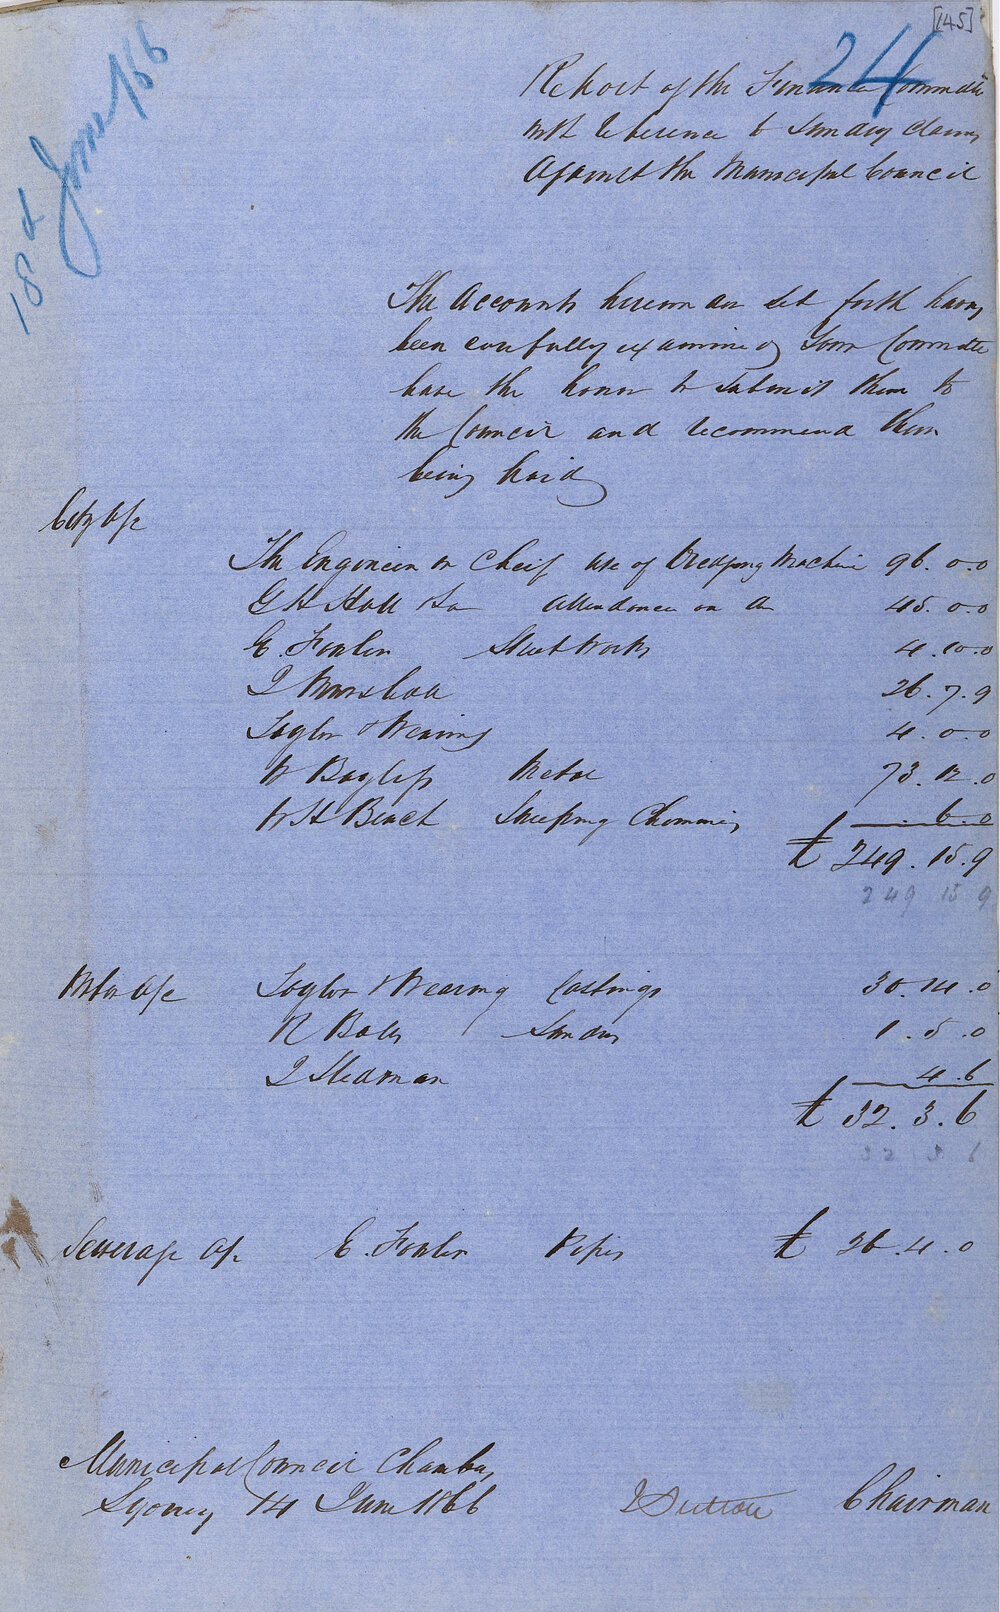 [145]
24
18th June /66
Report of the Finance Committee
with reference to Sundry Claims
Against the Municipal Council
The Accounts hereon are set forth having
been carefully examined Your Committee
have the honor to submit them to
the Council and recommend them
being paid
City A/c
The Engineer in Cheif use of Dredging Machine 96.0.0
G H Holl attendance on Do 45.0.0
E. Fowler Street Works 4.10.0
J Marshall 26.7.9
Taylor & Wearing 4.0.0
W Bayliss Metal 73.12.0
W H Beach Sweeping Chimnies 6.0
£ 249.15.9
249 15 9
Water A/c Taylor & Wearing Castings 30.14.0
R Ball Sundries 1.5.0
J Stedman 4.6
£ 32.3.6
32 3 6
Sewerage A/c E. Fowler Pipes £ 26.4.0
Municipal Council Chamber,
Sydney 14 June 1866
J Sutton Chairman